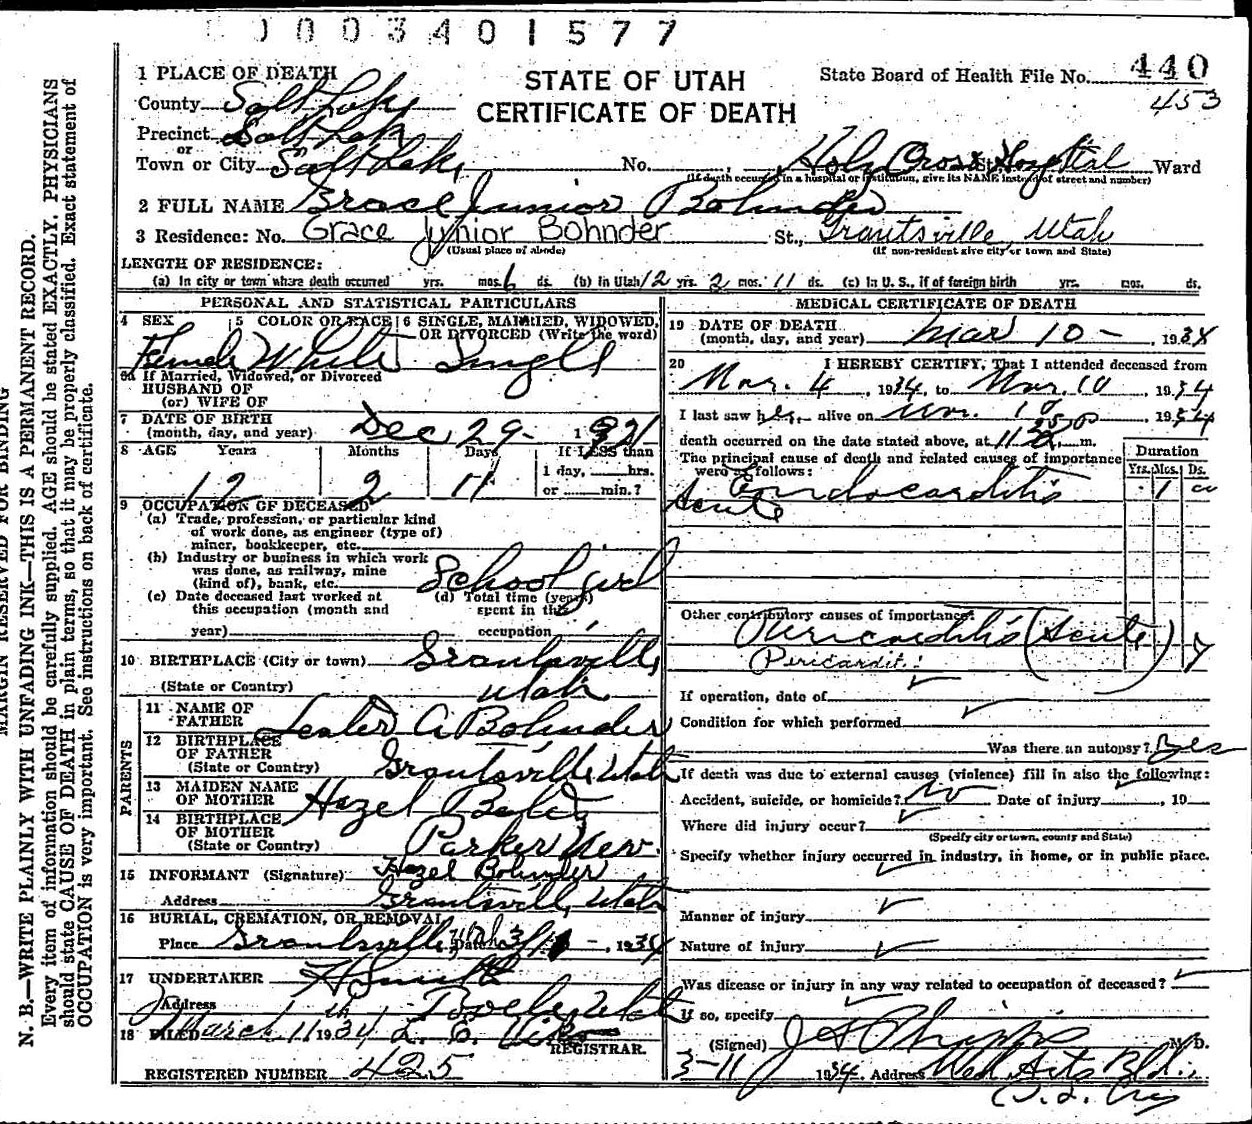 0003401577
1 PLACE OF DEATH
STATE OF UTAH
CERTIFICATE OF DEATH
State Board of Health File No. 440
453
County Salt Lake
Precinct Salt Lake
or
Town or City Salt Lake No. , Holy Cross Hospital St. Ward
(If death occurred in a hospital or institution, give its NAME instead of street and number)
2 FULL NAME Grace Junior Bohnder
3 Residence: No. Grace Junior Bohnder St., Grantsville Utah
(Usual place of abode) (If non-resident give city or town and State)
LENGTH OF RESIDENCE:
(a) In city or town where death occurred yrs. mos. 6 ds. (b) In Utah 12 yrs. 2 mos. 11 ds. (c) In U. S., if of foreign birth yrs. mos. ds.
PERSONAL AND STATISTICAL PARTICULARS
4 SEX 5 COLOR OR RACE 6 SINGLE, MARRIED, WIDOWED, OR DIVORCED (Write the word)
Female White Single
6a If Married, Widowed, or Divorced
HUSBAND OF
(or) WIFE OF
7 DATE OF BIRTH
(month, day, and year) Dec 29 - 1921
8 AGE Years Months Days If LESS than
1 day, hrs.
or min.?
12 2 11
9 OCCUPATION OF DECEASED
(a) Trade, profession, or particular kind
of work done, as engineer (type of)
miner, bookkeeper, etc.
(b) Industry or business in which work
was done, as railway, mine
(kind of), bank, etc. School girl
(c) Date deceased last worked at
this occupation (month and
year)
(d) Total time (years)
spent in this
occupation
10 BIRTHPLACE (City or town) Grantsville
(State or Country) Utah
PARENTS
11 NAME OF
FATHER Lester A Bohnder
12 BIRTHPLACE
OF FATHER
(State or Country) Grantsville Utah
13 MAIDEN NAME
OF MOTHER Hazel
14 BIRTHPLACE
OF MOTHER
(State or Country) Parker Nev.
15 INFORMANT (Signature) Hazel Bohnder
Address Grantsville, Utah
16 BURIAL, CREMATION, OR REMOVAL
Place Grantsville, Utah Date 3/ - , 1934
17 UNDERTAKER
Address Tooele Utah
18 FILED March 11th 1934 L. E.
REGISTRAR.
REGISTERED NUMBER 425
MEDICAL CERTIFICATE OF DEATH
19 DATE OF DEATH
(month, day, and year) Mar 10 - , 1934
20 I HEREBY CERTIFY, That I attended deceased from
Mar. 4 , 1934, to Mar. 10 , 1934
I last saw her alive on Mar. 10 1934
death occurred on the date stated above, at m.
The principal cause of death and related causes of importance
were as follows:
Duration
Yrs. Mos. Ds.
Endocarditis 1
Acute
Other contributory causes of importance:
Pericarditis (Acute) 7
Pericardit.
If operation, date of
Condition for which performed
Was there an autopsy? Yes
If death was due to external causes (violence) fill in also the following:
Accident, suicide, or homicide? No Date of injury , 19
Where did injury occur?
(Specify city or town, county and State)
Specify whether injury occurred in industry, in home, or in public place.
Manner of injury
Nature of injury
Was disease or injury in any way related to occupation of deceased?
If so, specify
(Signed) M. D.
3-11 1934. Address Med Arts Bld.,
MARGIN RESERVED FOR BINDING
N. B.—WRITE PLAINLY WITH UNFADING INK—THIS IS A PERMANENT RECORD.
Every item of information should be carefully supplied. AGE should be stated EXACTLY. PHYSICIANS
should state CAUSE OF DEATH in plain terms, so that it may be properly classified. Exact statement of
OCCUPATION is very important. See instructions on back of certificate.